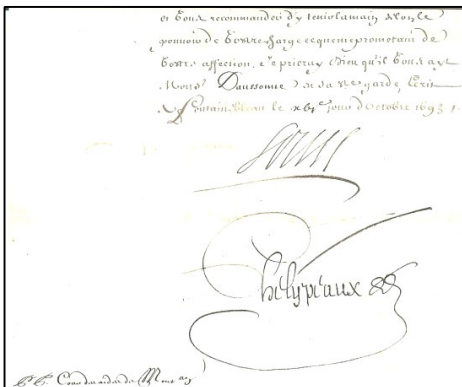 et vous recommander d'y tenir la main selon le
pouvoir de vostre charge ce que me promettant de
vostre affection, Je prieray Dieu qu'il vous aye
Mons.r Daussonne en sa S.te garde, Ecrit
Fontainebleau le jour d'Octobre 1693 ./.
Louis
Phélypeaux